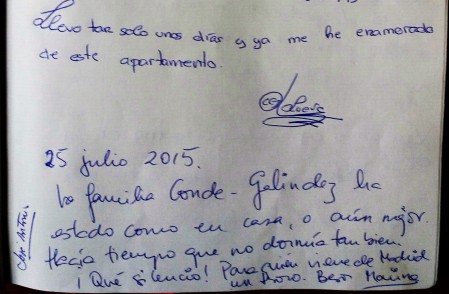 Llevo tan solo unos días y ya me he enamorado
de este apartamento.
25 julio 2015.
La familia Conde - Galindez ha
estado como en casa, o aún mejor.
Hacía tiempo que no dormía tan bien.
¡Qué silencio! Para quien viene de Madrid
un